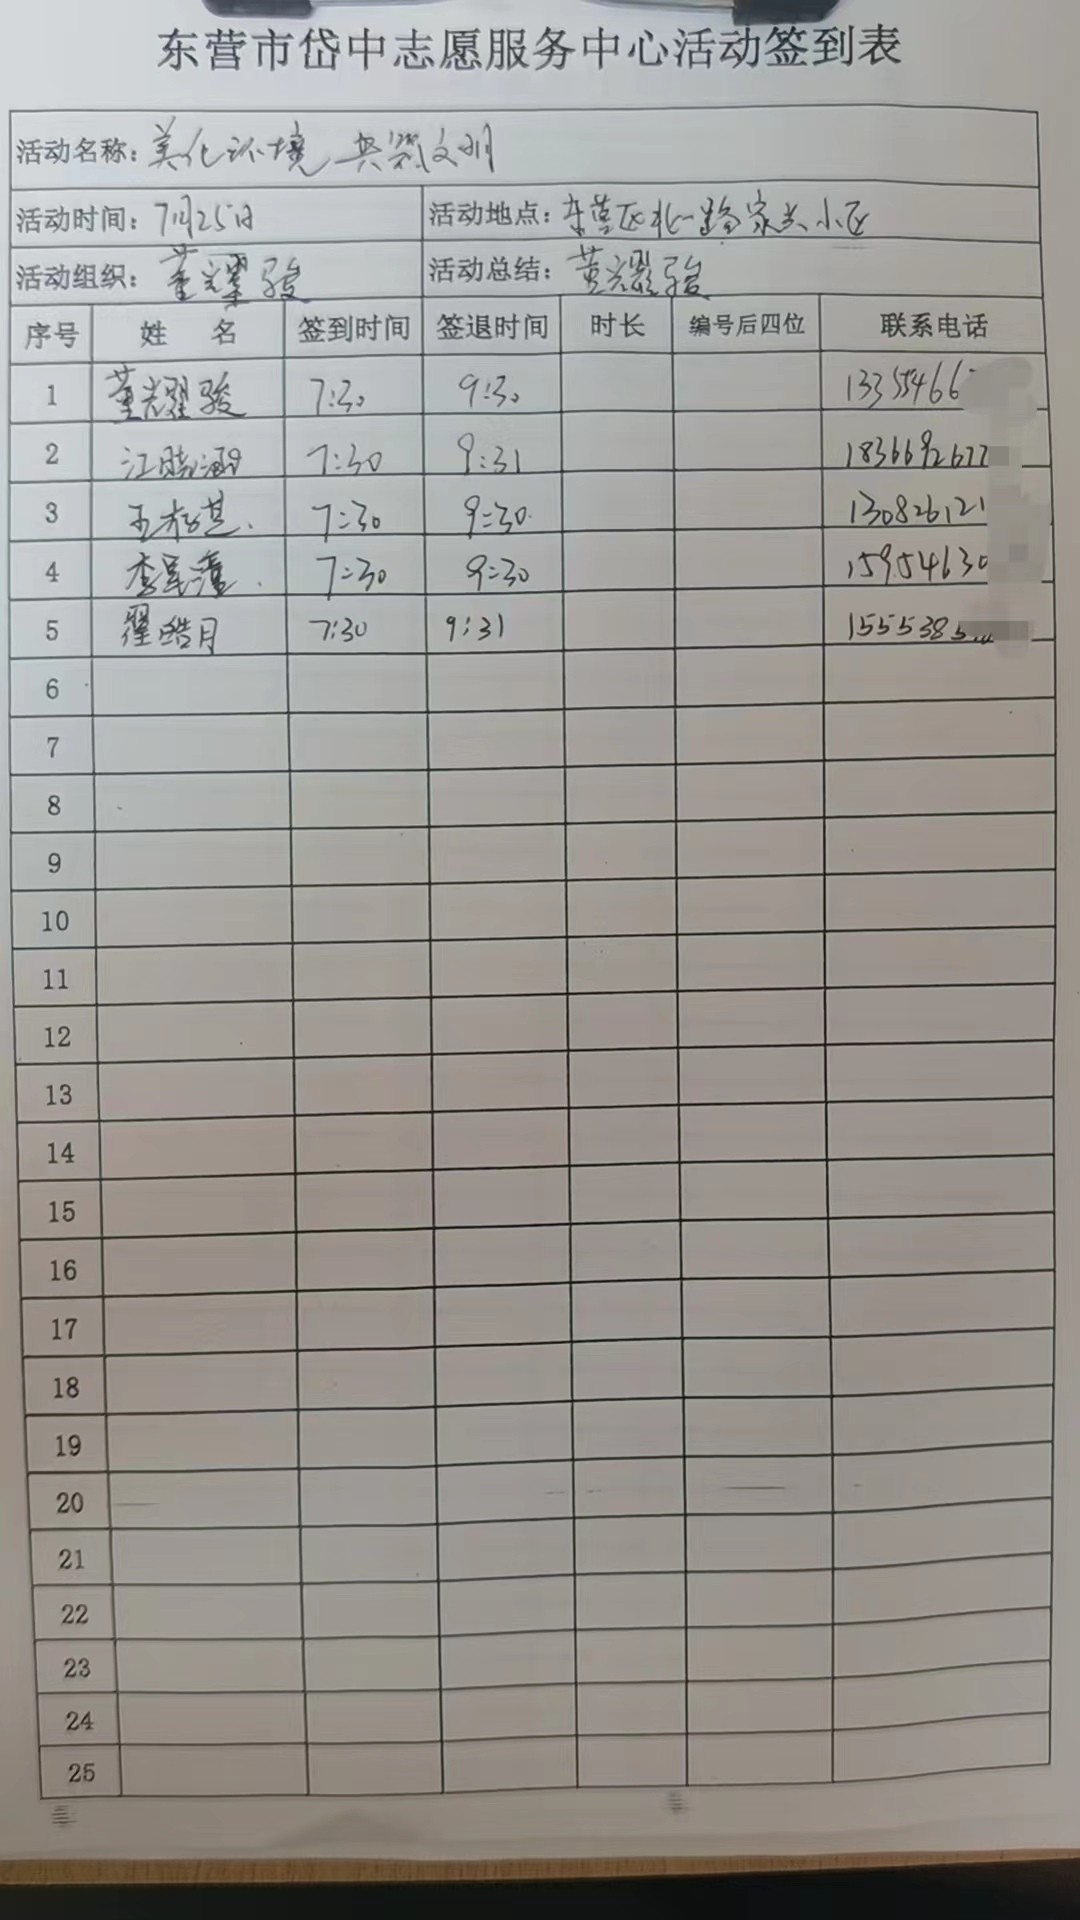 东营市岱中志愿服务中心活动签到表
活动名称: 美化环境 共筑文明
活动时间: 7月25日 活动地点: 东营区北一路家关小区
活动组织: 董耀骏 活动总结: 董耀骏
序号 姓 名 签到时间 签退时间 时长 编号后四位 联系电话
1 董耀骏 7:30 9:30 13355466
2 江晓涵 7:30 9:31 1836692677
3 7:30 9:30 130826121
4 7:30 9:30 15954630
5 翟皓月 7:30 9:31 1555385
6
7
8
9
10
11
12
13
14
15
16
17
18
19
20
21
22
23
24
25